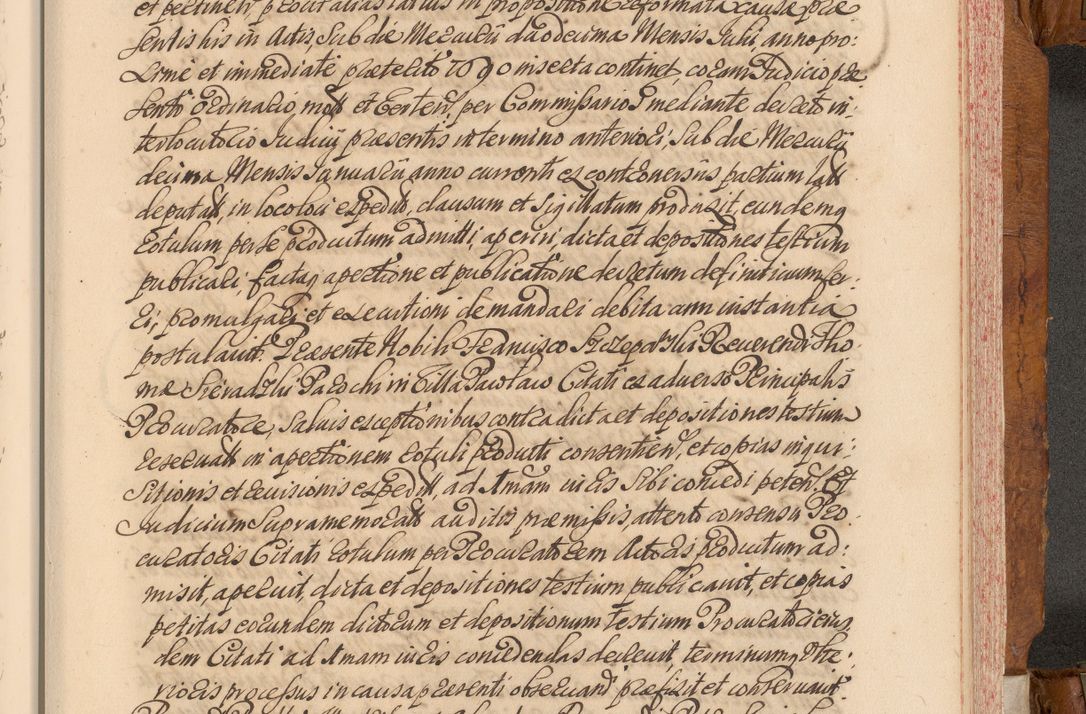 et pertinen̄, prout alias latius in propositione reformata causæ præ
sentis his in Actis, Sub die Mercurii duodecima Mensis Julii, anno pro:
xime et immediate præterito 1690 inserta continet coram Judicio præ
senti ordinario, mott et Certen̄ per Commissarios mediante decreto in:
terlocutorio Judicii præsentis in termino anteriori, Sub die Mercurii
decima Mensis Januarii anno currenti ex controversiis partium latt
deputatt, in loco loci expeditt, clausum et Sigillatum produxit, eundemq
rotulum per se productum admitti, aperiri, dicta et depositiones testium
publicari, factaq apertione et publicatione decretum definitivum fer:
ri, promulgari, et executioni demandari debita cum instantia
postulavit. Præsente Nobili Francisco Szczepański Reverendi Tho:
mæ Sieradzki Parochi in Villa Pawłow Citati ex adverso Principalis
Procuratore, Salvis exceptionibus contra dicta et depositiones testium
reservatt in apertionem rotuli producti consentien̄, et copias inqui:
sitionis et revisionis expeditt, ad Amam iuris Sibi concedi peten̄. Et
Judicium Supramemoratt auditis præmissis, attento consensu Pro
curatoris Citati rotulum per Procuratorem Actoris productum ad:
misit, aperuit, dicta et depositiones testium publicavit, et copias
petitas eorundem dictorum et depositionum testium Procuratori eius
dem Citati ad Amam iuris concedendas decrevit, terminumq Ulte:
rioris processus in causa præsenti observand præfixit et conservavit.